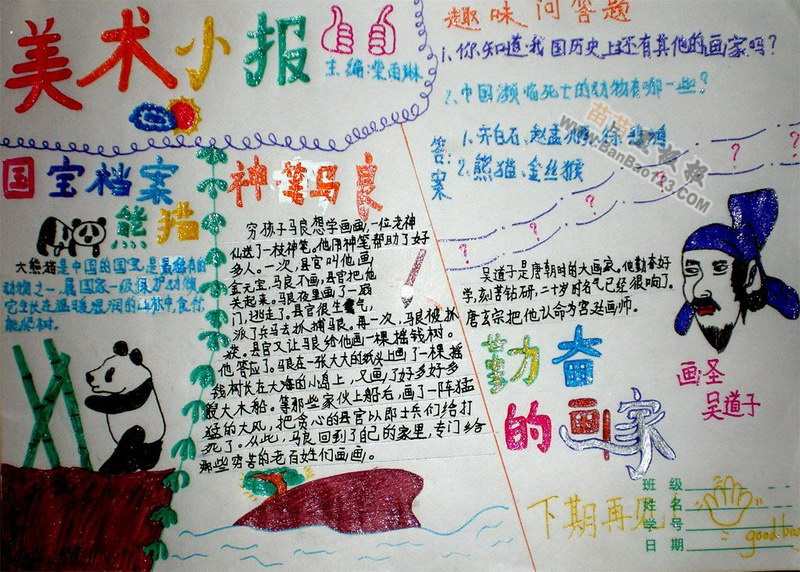 美术小报
主编:棠雨琳
趣味问答题
1、你知道我国历史上还有其他的画家吗?
2、中国濒临死亡的动物有哪一些?
答案:
1、齐白石、赵孟 徐悲鸿
2、熊猫、金丝猴
www.BanBao123.com
国宝档案
熊猫
大熊猫是中国的国宝,是最稀有的
动物之一,属国家一级保护动物,
它生长在温暖湿润的山林中,食竹,
能爬树。
神笔马良
穷孩子马良想学画画,一位老神
仙送了一枝神笔。他用神笔帮助了好
多人。一次,县官叫他画
金元宝,马良不画,县官把他
关起来。马良夜里画了一扇
门,逃走了。县官很生气,
派了兵马去抓捕马良。再一次,马良被抓
获。县官又让马良给他画一棵摇钱树。
他答应了。马良在一张大大的纸头上画了一棵摇
钱树长在大海的小岛上,又画了好多好多
艘大木船。等那些家伙上船后,画了一阵猛
猛的大风,把贪心的县官以即士兵们给打
死了。从此,马良回到了自己的家里,专门给
那些穷苦的老百姓们画画。
吴道子是唐朝时的大画家。他勤奋好
学,刻苦钻研,二十岁时名气已经很响了。
唐玄宗把他认命为宫廷画师。
画圣
吴道子
勤奋
的画家
下期再见!
班 级
姓 名
学 号
日 期
good bay